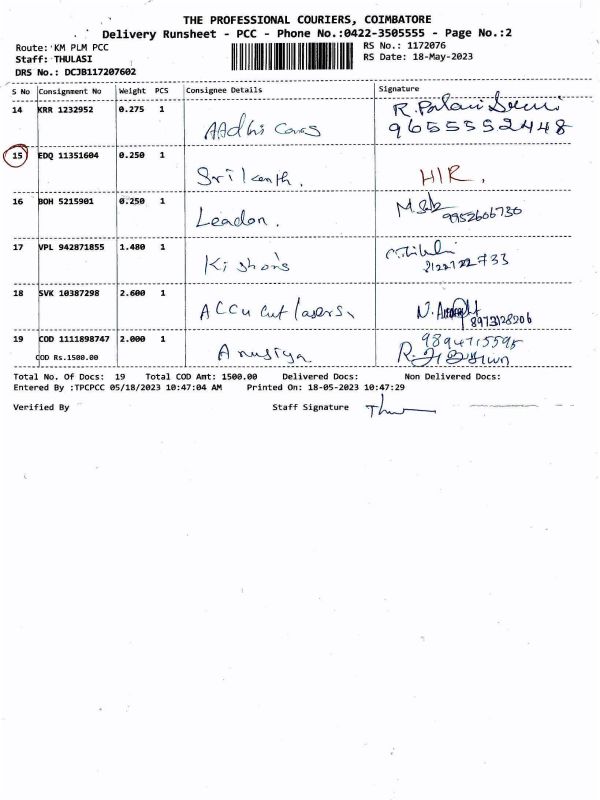 THE PROFESSIONAL COURIERS, COIMBATORE
Delivery Runsheet - PCC - Phone No.:0422-3505555 - Page No.:2
Route: KM PLM PCC
RS No.: 1172076
Staff: THULASI
RS Date: 18-May-2023
DRS No.: DCJB117207602
S No Consignment No Weight PCS Consignee Details Signature
14 KRR 1232952 0.275 1 AAdhi Cars
9655552448
15 EDQ 11351604 0.250 1 Srikanth. HIR.
16 BOH 5215901 0.250 1 Leadon.
9952606730
17 VPL 942871855 1.480 1 Kishor's
18 SVK 10387298 2.600 1 Accu cut lasers
8973128206
19 COD 1111898747 2.000 1 Anusiya
9894715595
COD Rs.1500.00
Total No. Of Docs: 19 Total COD Amt: 1500.00 Delivered Docs: Non Delivered Docs:
Entered By :TPCPCC 05/18/2023 10:47:04 AM Printed On: 18-05-2023 10:47:29
Verified By Staff Signature